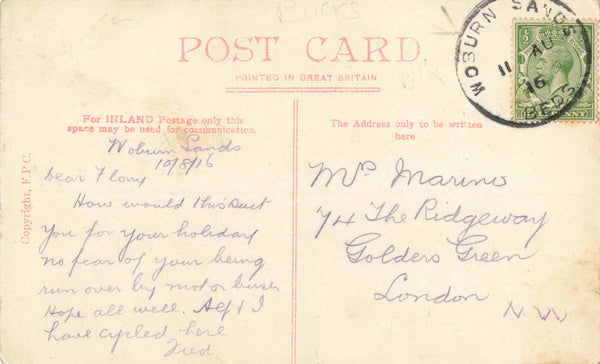 BUCKS
POST CARD
PRINTED IN GREAT BRITAIN
WOBURN SANDS
11 AU
16
BEDS
For INLAND Postage only this
space may be used for communication.
The Address only to be written
here
Copyright, F.P.C.
Woburn Sands
10/8/16
Dear Flory
How would this suit
you for your holiday
no fear of your being
run over by motor buses
Hope all well. Alf & I
have cycled here
Fred
Mrs Marino
74 The Ridgeway
Golders Green
London
N.W